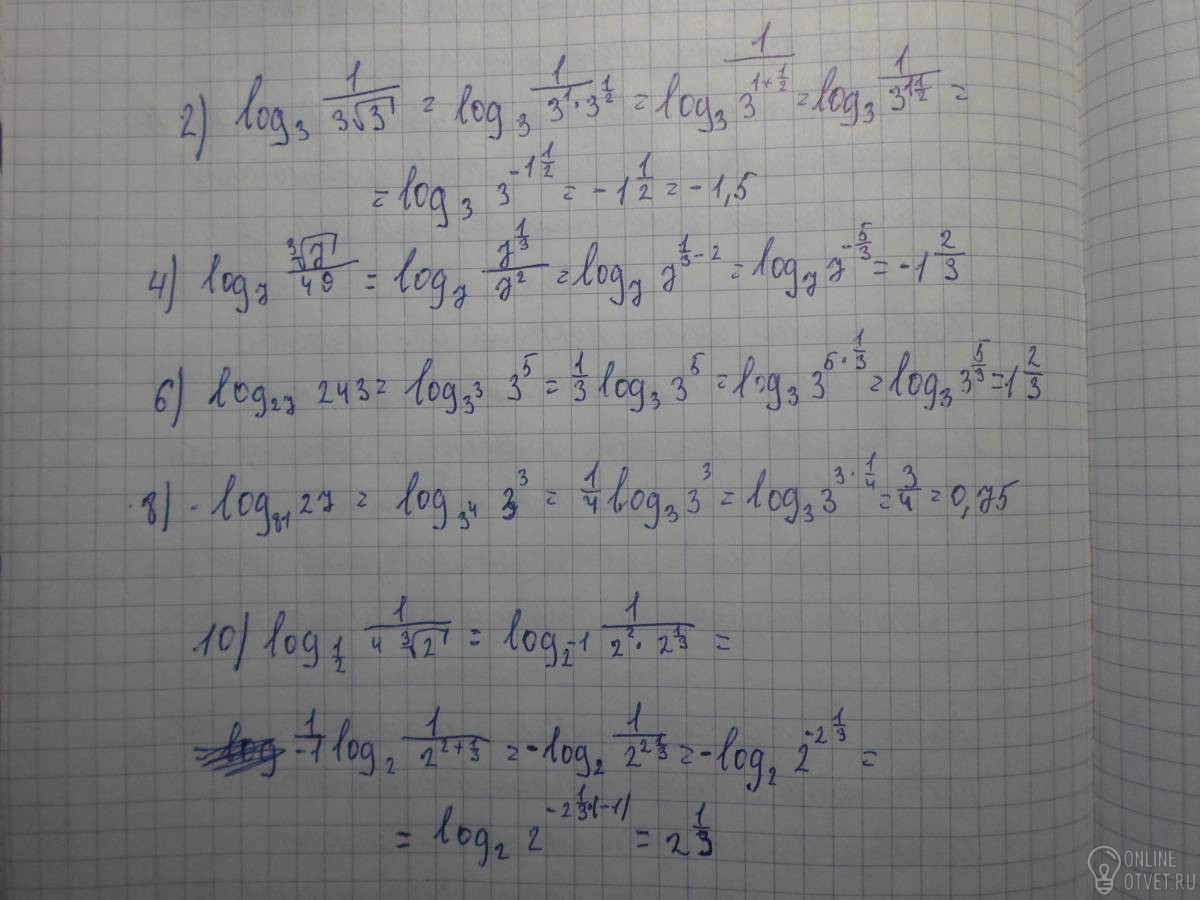 2) log₃ 1/(3√3) = log₃ 1/(3¹·3^(1/2)) = log₃ 1/3^(1+1/2) = log₃ 1/3^(1 1/2) =
= log₃ 3^(-1 1/2) = -1 1/2 = -1,5
4) log₇ ∛7/49 = log₇ 7^(1/3)/7² = log₇ 7^(1/3-2) = log₇ 7^(-5/3) = -1 2/3
6) log₂₇ 243 = log_(3³) 3⁵ = 1/3 log₃ 3⁵ = log₃ 3^(5·1/3) = log₃ 3^(5/3) = 1 2/3
8) log₈₁ 27 = log_(3⁴) 3³ = 1/4 log₃ 3³ = log₃ 3^(3·1/4) = 3/4 = 0,75
10) log_(1/2) 1/(4∛2) = log_(2^-1) 1/(2²·2^(1/3)) =
1/-1 log₂ 1/2^(2+1/3) = -log₂ 1/2^(2 1/3) = -log₂ 2^(-2 1/3) =
= log₂ 2^(-2 1/3·(-1)) = 2 1/3
ONLINE
OTVET.RU